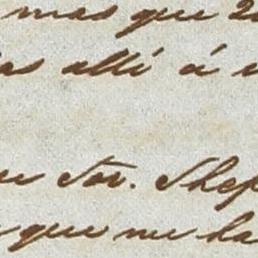 mas que 2
as allí á
Sor. Shep
que me ha